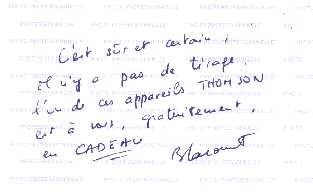 C'est sûr et certain,
il n'y a pas de tirage.
l'un de ces appareils THOMSON
est à vous, gratuitement,
en CADEAU